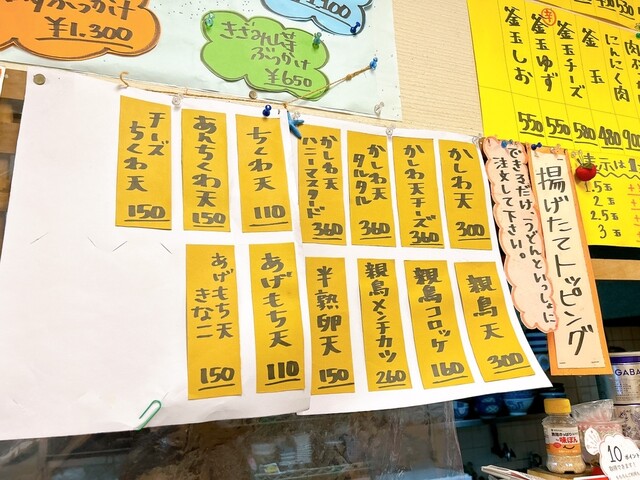 ぶっかけ
¥1,300
きざみ
ぶっかけ
¥650
釜玉しお
550
釜玉ゆず
550
釜玉チーズ
580
釜玉
480
にんにく肉
揚げたてトッピング
できるだけ、うどんといっしょに
注文して下さい。
かしわ天
300
かしわ天チーズ
360
かしわ天
タルタル
360
かしわ天
ハニーマスタード
360
ちくわ天
110
あんちくわ天
150
チーズ
ちくわ天
150
親鳥天
300
親鳥コロッケ
160
親鳥メンチカツ
260
半熟卵天
150
あげもち天
110
あげもち天
きなこ
150
1.5玉
2玉
2.5玉
3玉
GABA
味ぽん
10ポイント